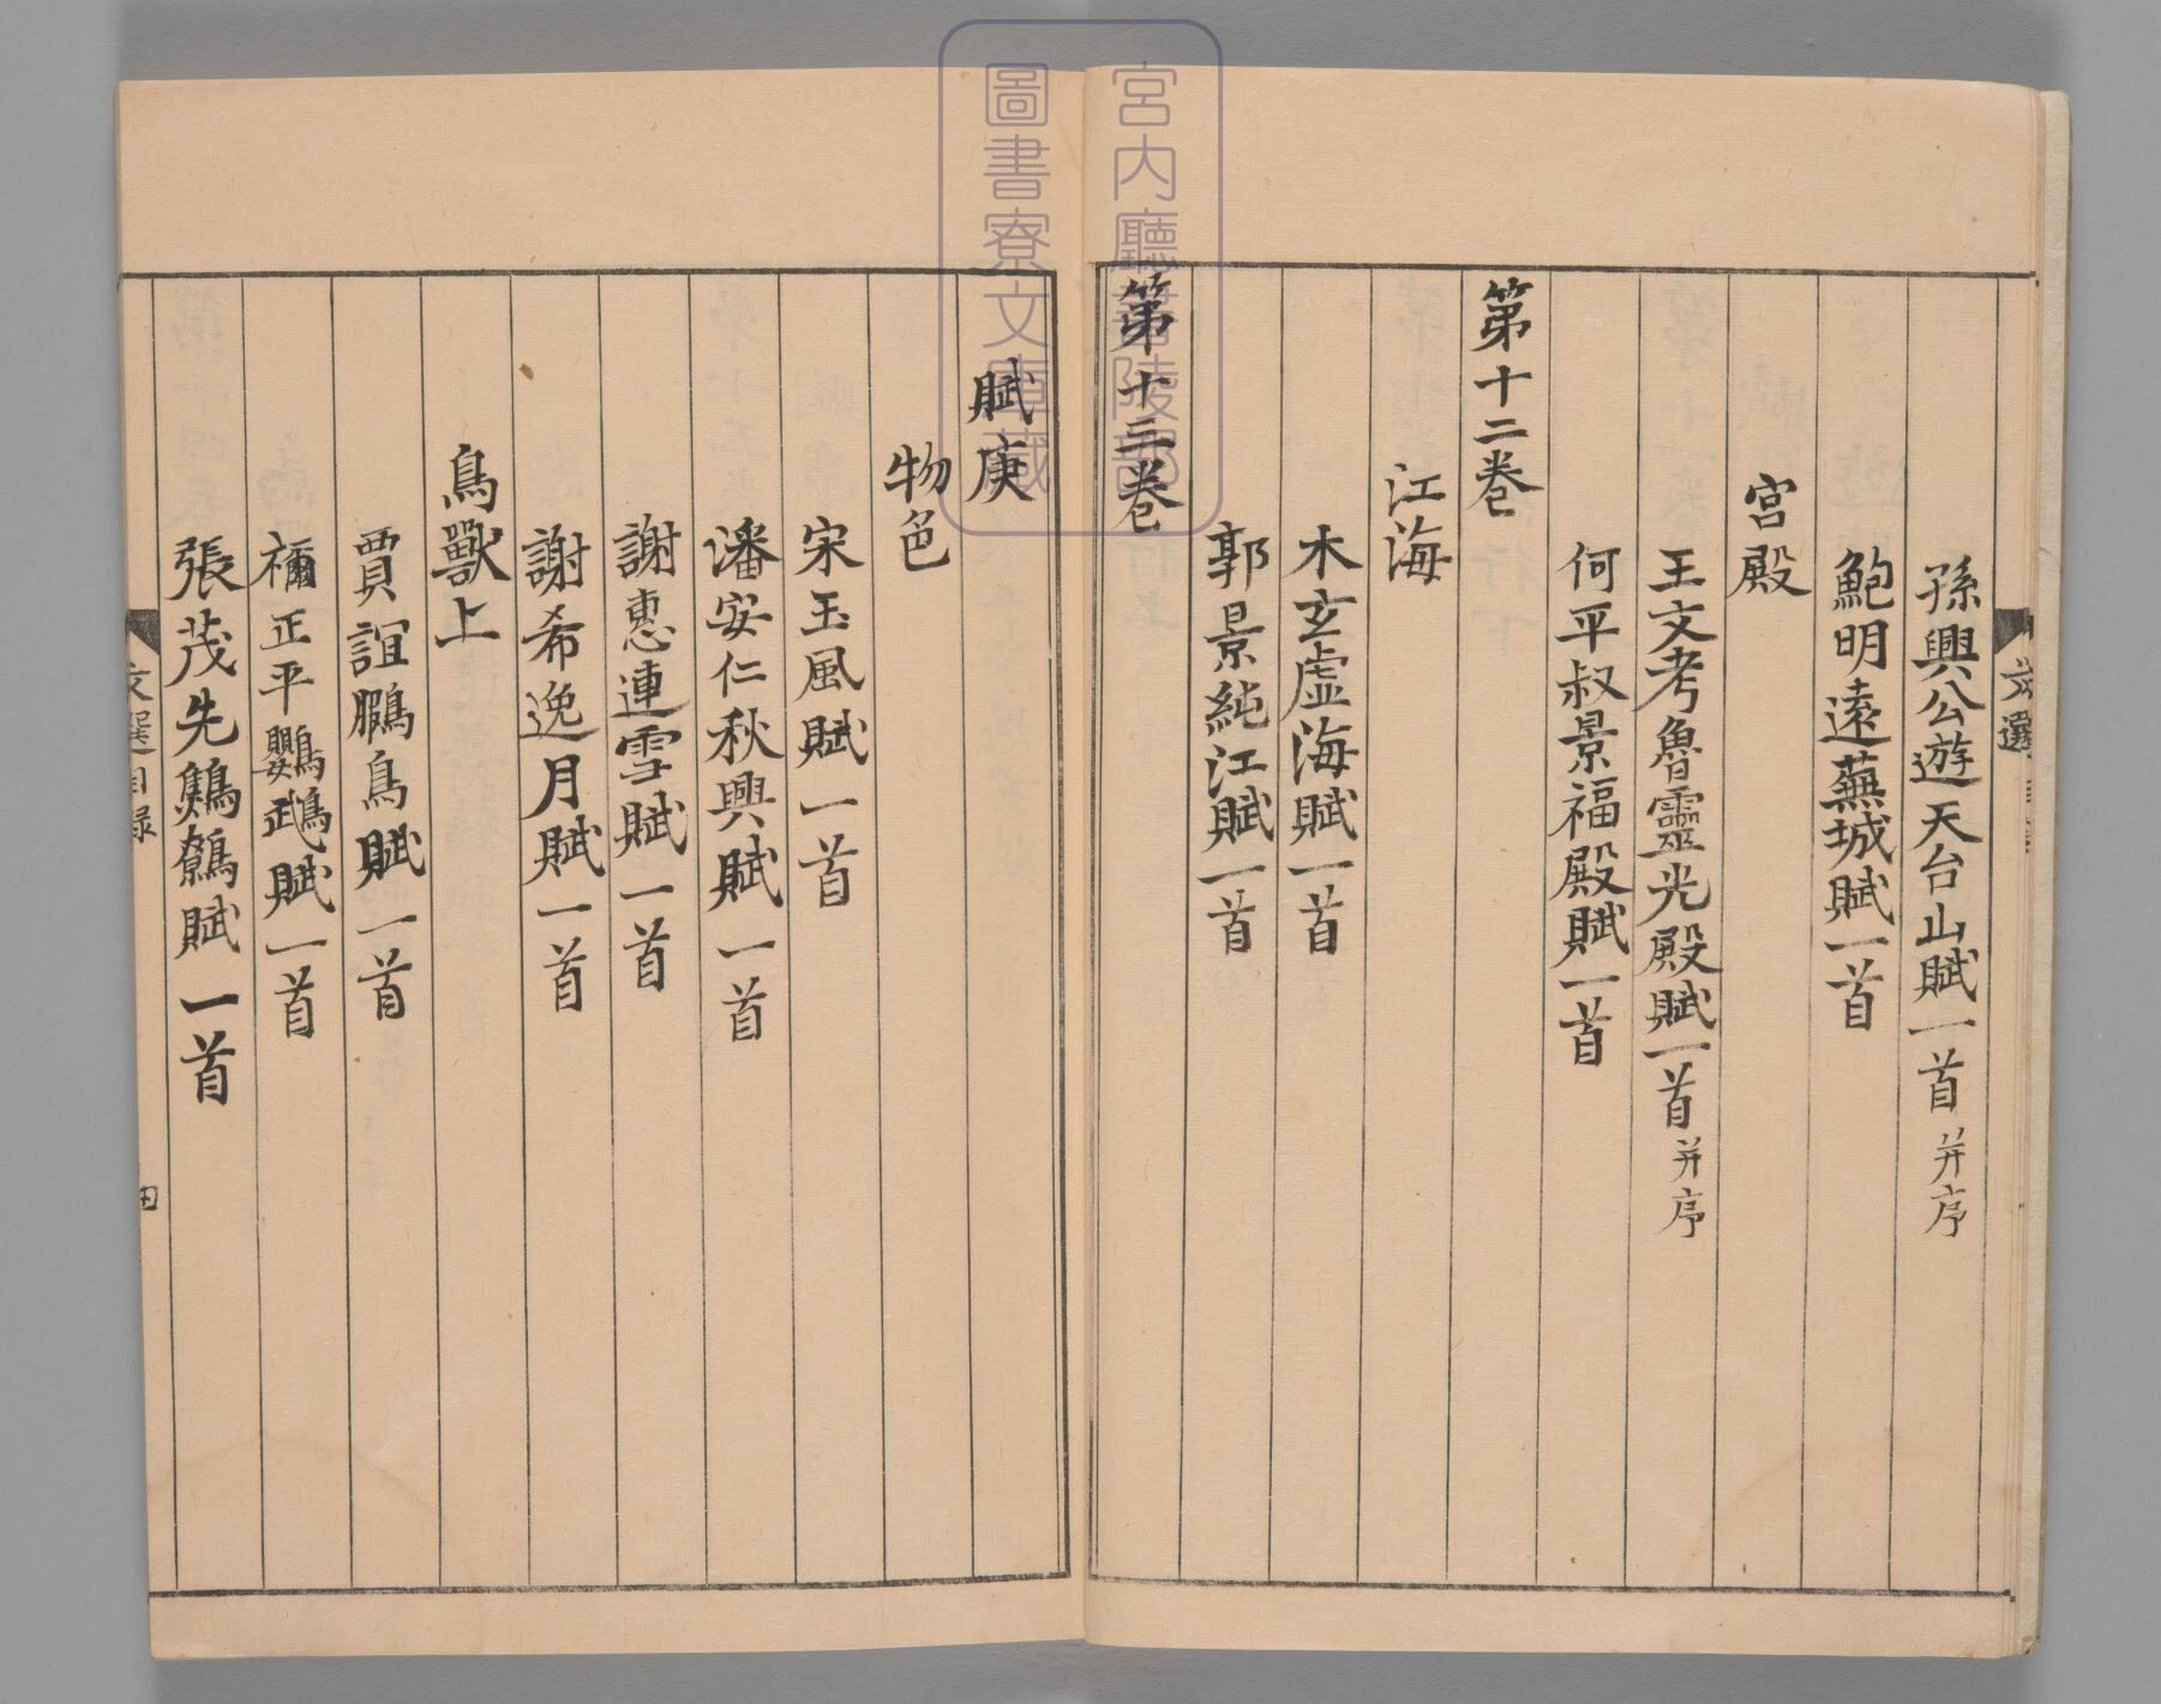 孫興公遊天台山賦一首并序
鮑明遠蕪城賦一首
宮殿
王文考魯靈光殿賦一首并序
何平叔景福殿賦一首
第十二卷
江海
木玄虛海賦一首
郭景純江賦一首
第十三卷
賦庚
物色
宋玉風賦一首
潘安仁秋興賦一首
謝惠連雪賦一首
謝希逸月賦一首
鳥獸上
賈誼鵩鳥賦一首
禰正平鸚鵡賦一首
張茂先鷦鷯賦一首
文選目録
文選
宮内廳書陵部
圖書寮文庫藏